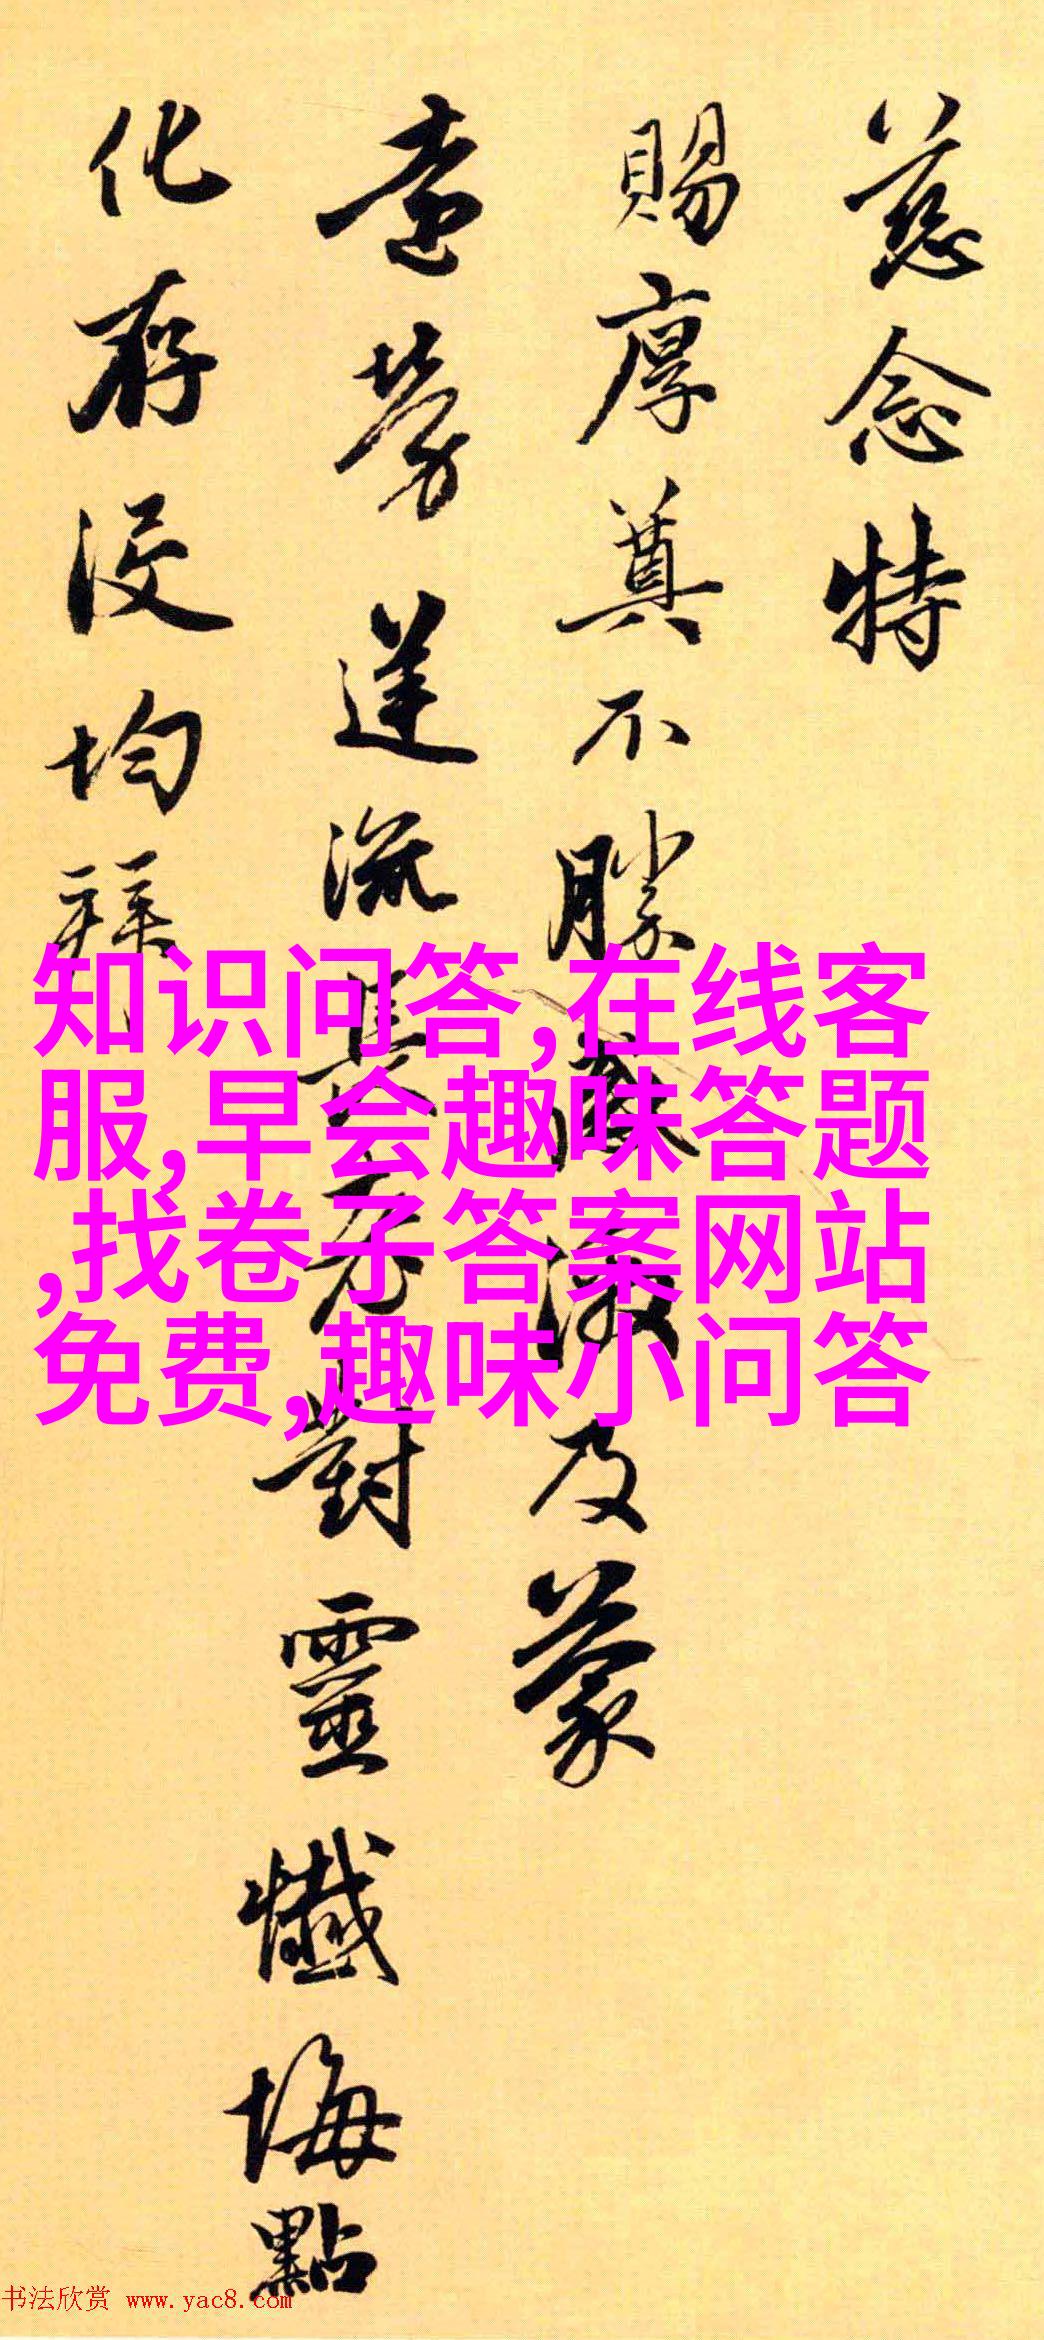 慈念特
賜厚奠不勝感激及蒙
遠勞蓮流其方對靈懺悔點
化存没均拜
知识问答,在线客
服,早会趣味答题
,找卷子答案网站
免费,趣味小问答
书法欣赏 www.yac8.com